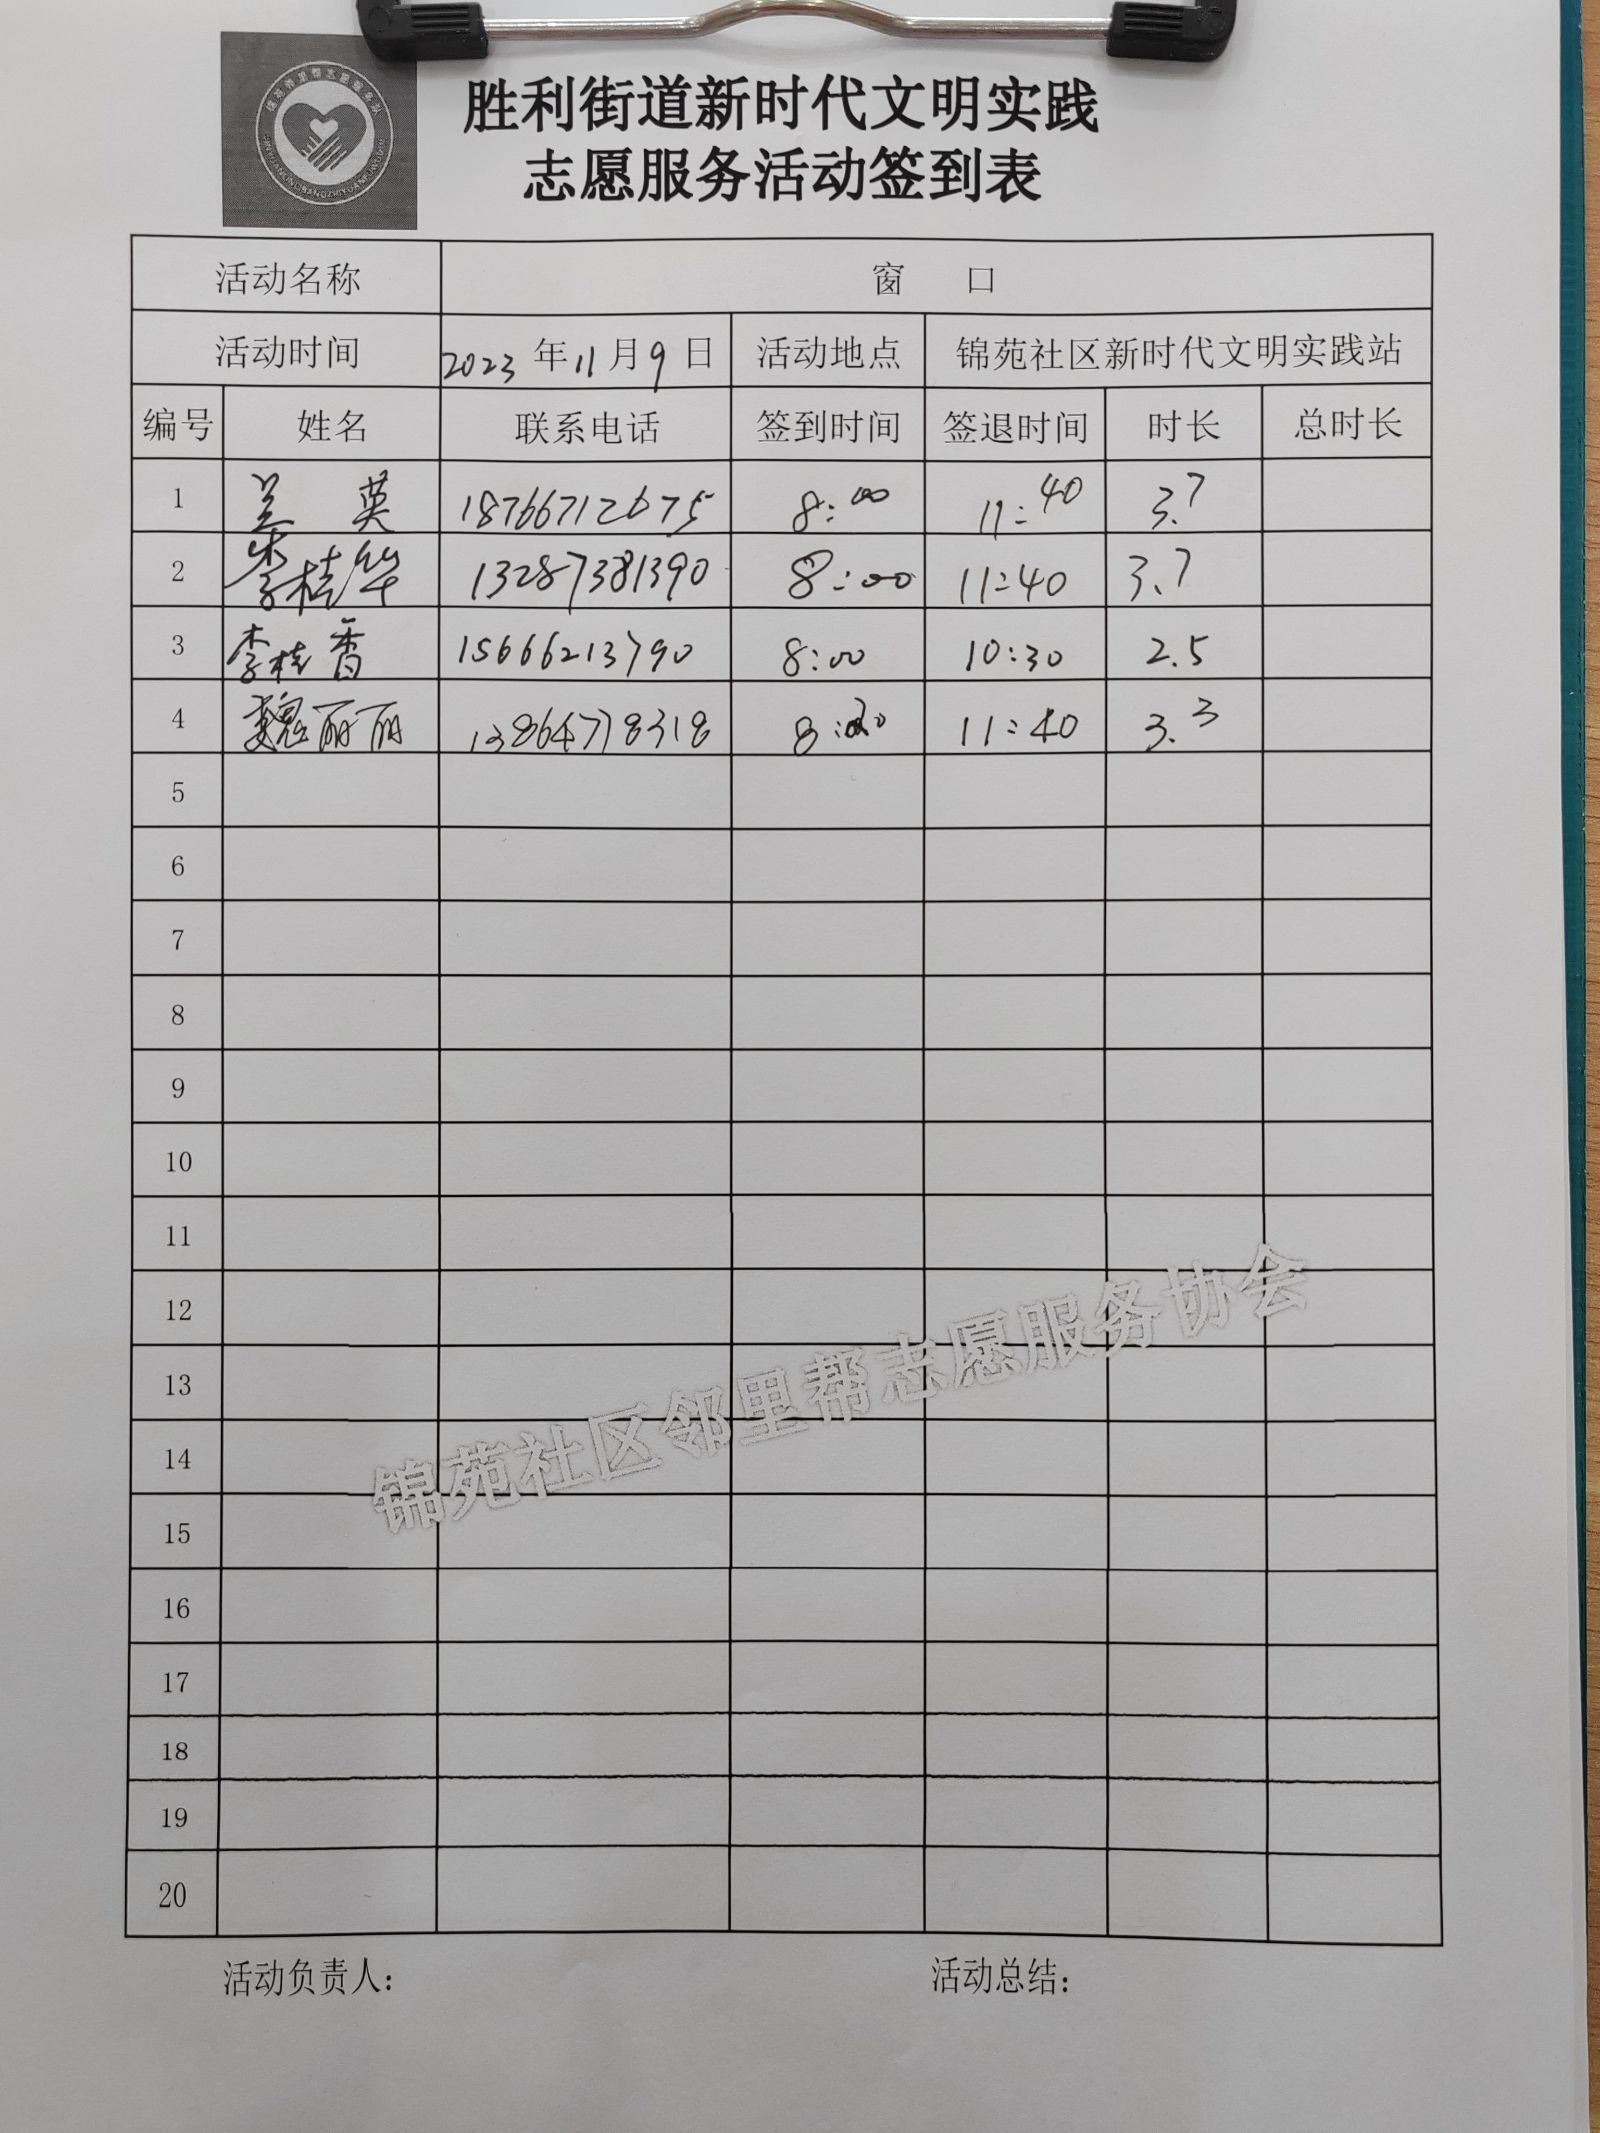 胜利街道新时代文明实践
志愿服务活动签到表
活动名称 窗 口
活动时间 2023 年 11 月 9 日 活动地点 锦苑社区新时代文明实践站
编号 姓名 联系电话 签到时间 签退时间 时长 总时长
1 兰 英 18766712675 8:00 11:40 3.7
2 李桂华 13287381390 8:00 11:40 3.7
3 李桂香 15666213790 8:00 10:30 2.5
4 魏丽丽 13864778318 8:20 11:40 3.3
5
6
7
8
9
10
11
12
13
14
15
16
17
18
19
20
锦苑社区邻里帮志愿服务协会
活动负责人: 活动总结: